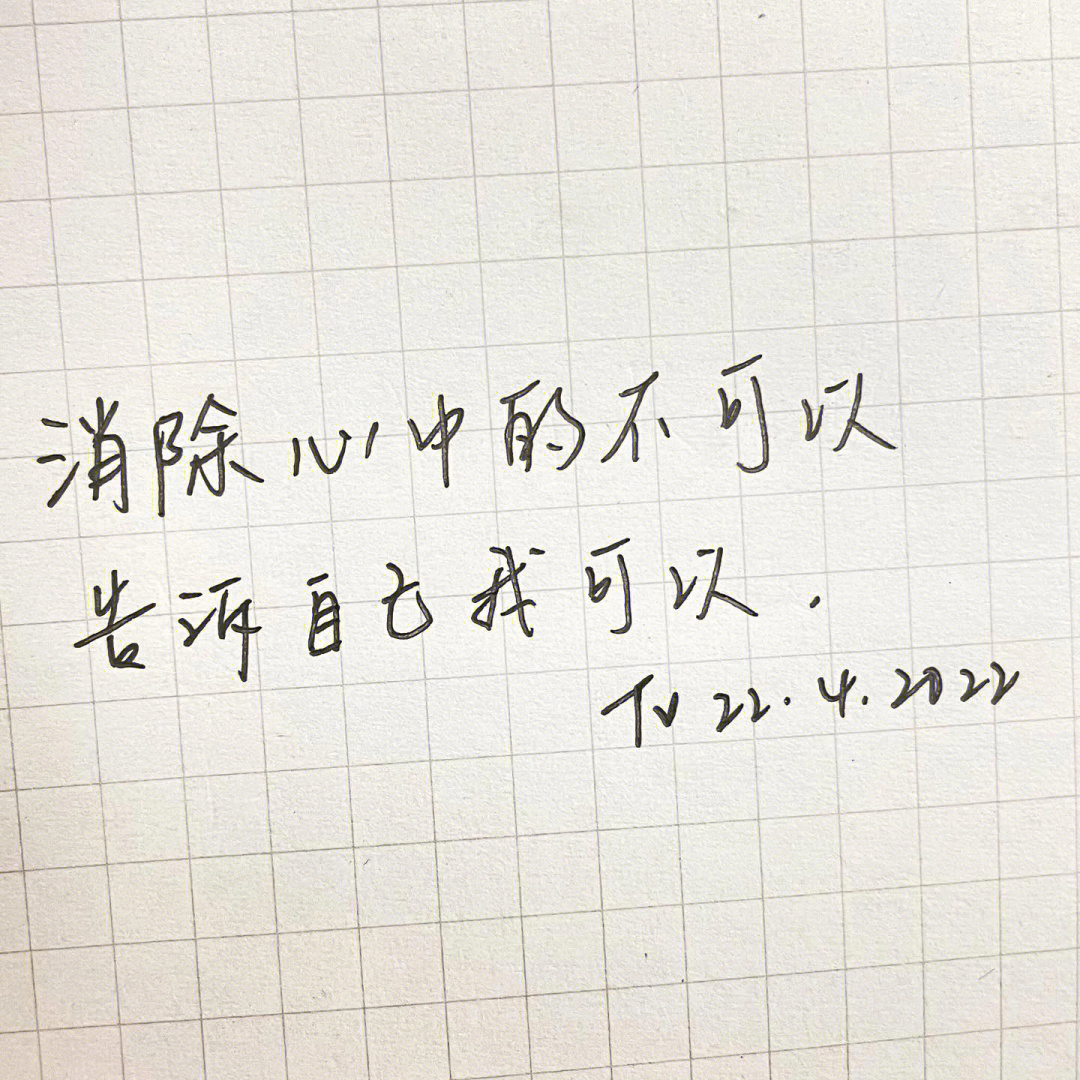 消除心中的不可以
告诉自己我可以.
22.4.2022